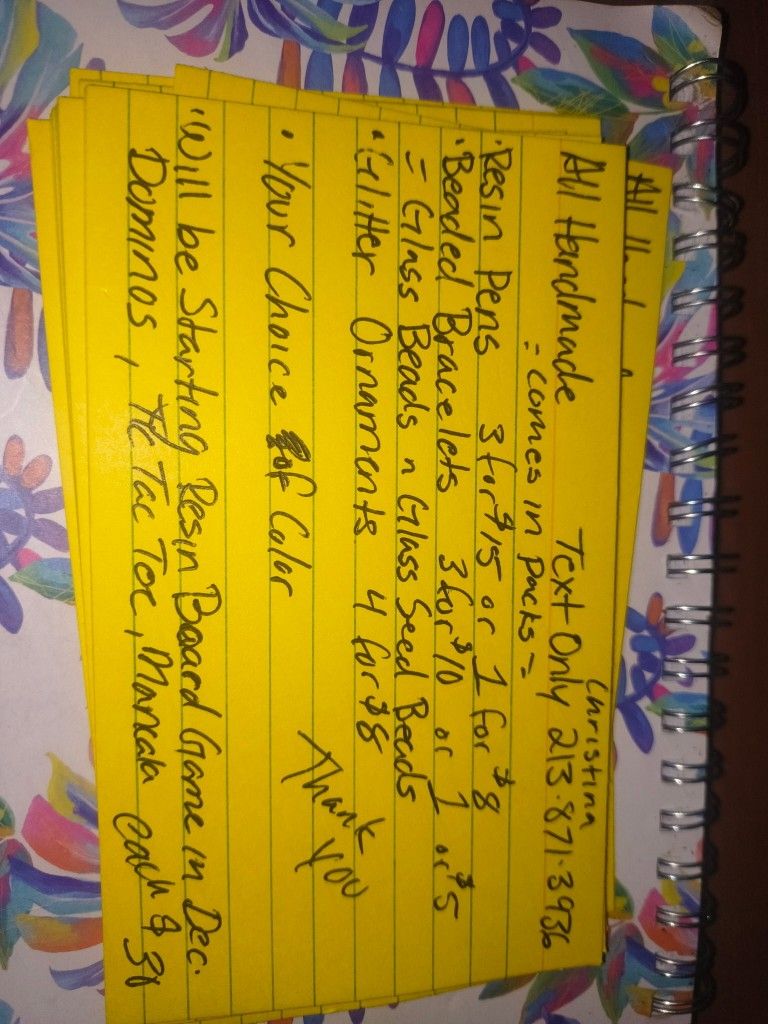 All Hand
Christina
All Handmade Text Only 213.871.3936
= comes in packs =
• Resin Pens 3 for $15 or 1 for $8
• Beaded Bracelets 3 for $10 or 1 or $5
= Glass Beads n Glass Seed Beads
• Glitter Ornaments 4 for $8
• Your Choice of Color
Thank you
• Will be Starting Resin Board Game in Dec.
Dominos, Tic Tac Toe, Mancala each $30